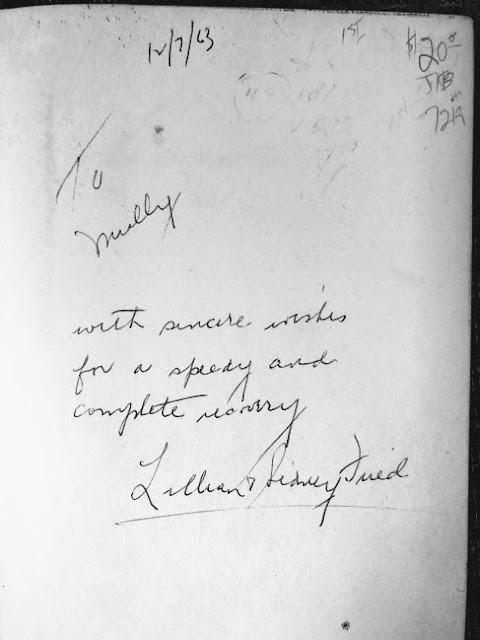 12/7/63
1st
$20
To
Molly
with sincere wishes
for a speedy and
complete recovery
Lillian & Sidney Fried